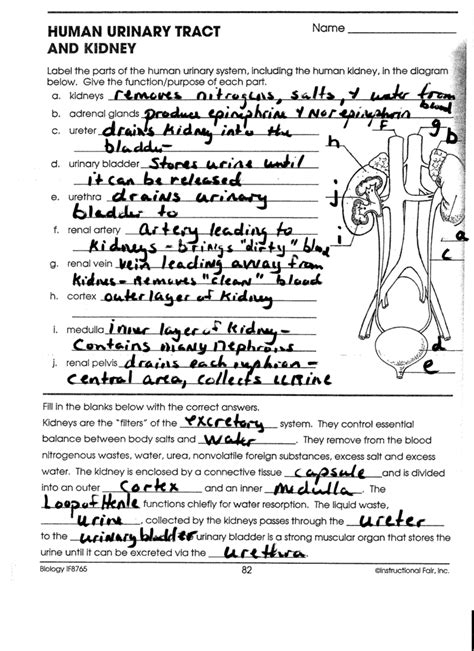 HUMAN URINARY TRACT
AND KIDNEY
Name
Label the parts of the human urinary system, including the human kidney, in the diagram
below. Give the function/purpose of each part.
a. kidneys removes nitrogens, salts, & water from
blood
b. adrenal glands produce epinephrine & Norepinephrin
c. ureter drains kidney into the
bladder
d. urinary bladder Stores urine until
it can be released
e. urethra drains urinary
bladder to
f. renal artery Artery leading to
Kidneys - brings "dirty" blood
g. renal vein vein leading away from
Kidney - Removes "clean" blood
h. cortex outer layer of Kidney
i. medulla inner layer of Kidney -
Contains many Nephrons
j. renal pelvis drains each nephron -
central area, collects urine
F
g
b
h
j
i
a
c
d
e
Fill in the blanks below with the correct answers.
Kidneys are the "filters" of the excretory system. They control essential
balance between body salts and water. They remove from the blood
nitrogenous wastes, water, urea, nonvolatile foreign substances, excess salt and excess
water. The kidney is enclosed by a connective tissue capsule and is divided
into an outer Cortex and an inner Medulla. The
Loop of Henle functions chiefly for water resorption. The liquid waste,
Urine, collected by the kidneys passes through the ureter
to the urinary bladder urinary bladder is a strong muscular organ that stores the
urine until it can be excreted via the urethra.
Biology IF8765
82
©Instructional Fair, Inc.